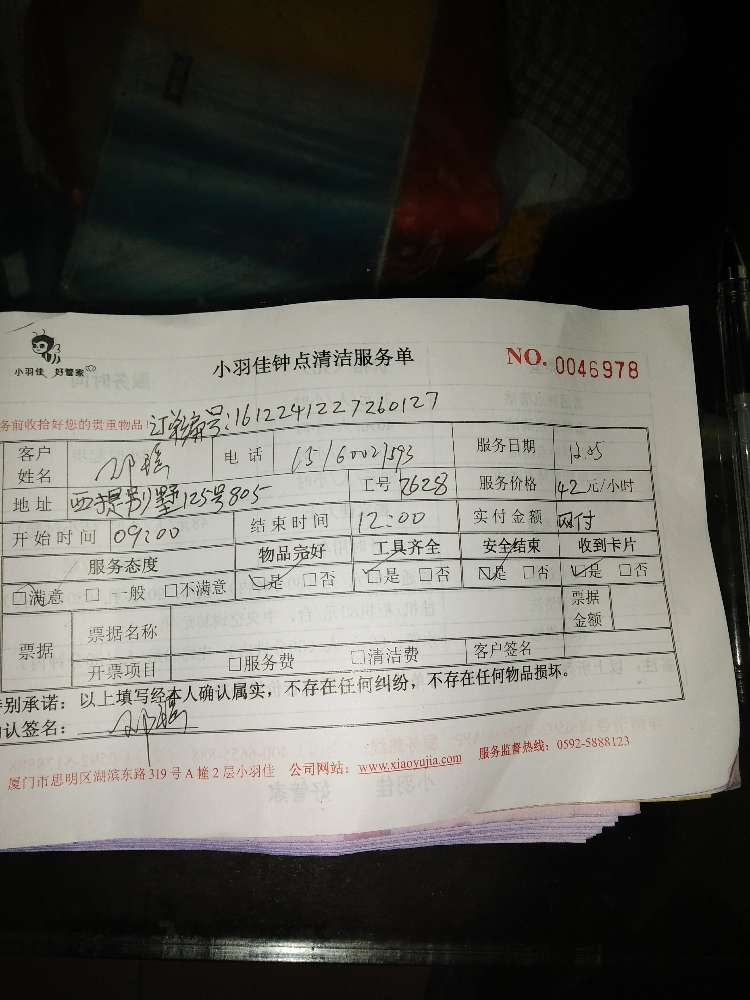 小羽佳 好管家
小羽佳钟点清洁服务单
NO. 0046978
务前收拾好您的贵重物品! 订单编号:1612241227260127
客户姓名 邓瑶 电话 服务日期
地址 西堤别墅125号805 工号 2628 服务价格 42元/小时
开始时间 09:00 结束时间 12:00 实付金额 网付
服务态度 物品完好 工具齐全 安全结束 收到卡片
□满意 □一般 □不满意 □是 □否 □是 □否 □是 □否 □是 □否
票据 票据名称 票据金额
开票项目 □服务费 □清洁费 客户签名
特别承诺：以上填写经本人确认属实，不存在任何纠纷，不存在任何物品损坏。
确认签名： 邓瑶
厦门市思明区湖滨东路319号A幢2层小羽佳 公司网站：www.xiaoyujia.com 服务监督热线：0592-5888123